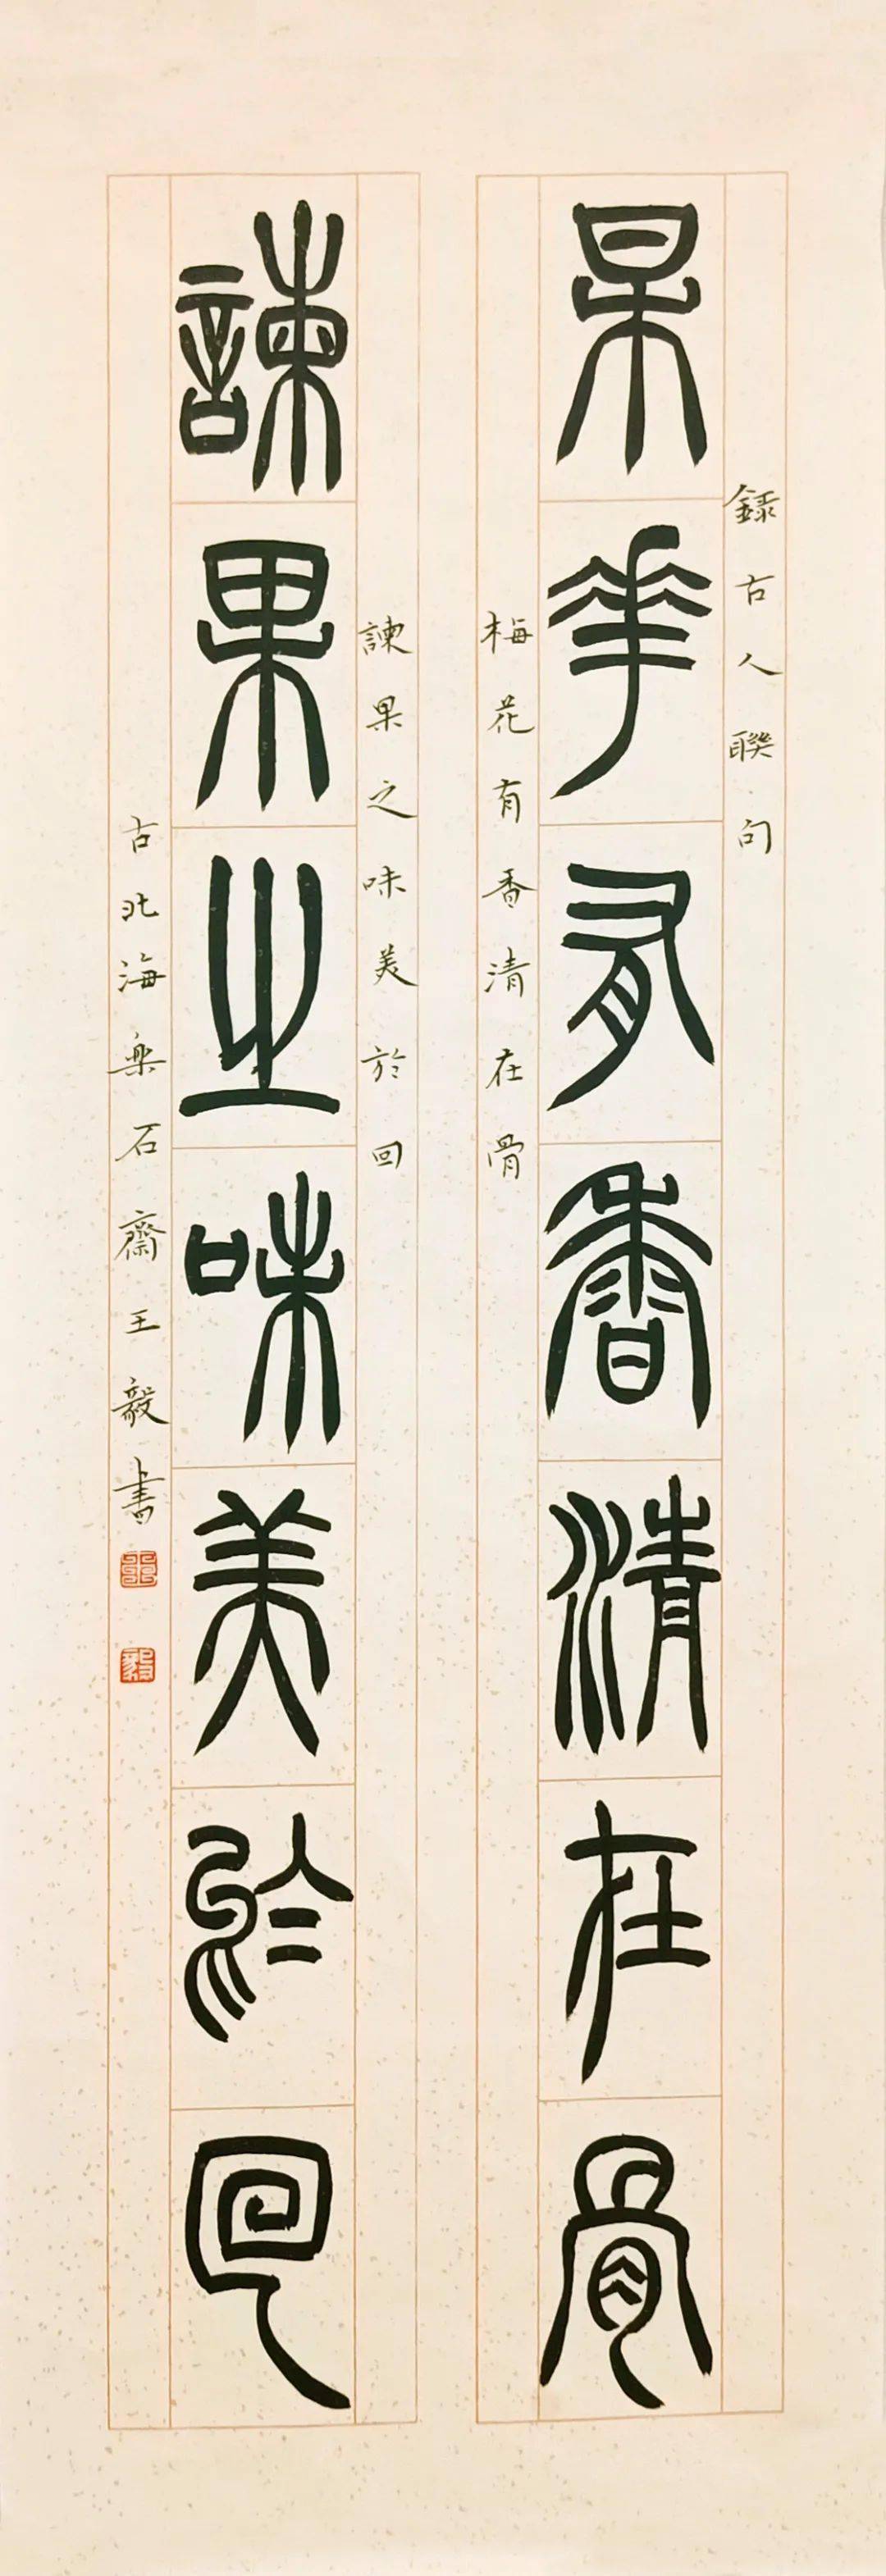 錄古人聯句
呆華有香清在骨
梅花有香清在骨
諫果之味美於回
諫果之味美於回
古北海樂石齋王毅書
王毅